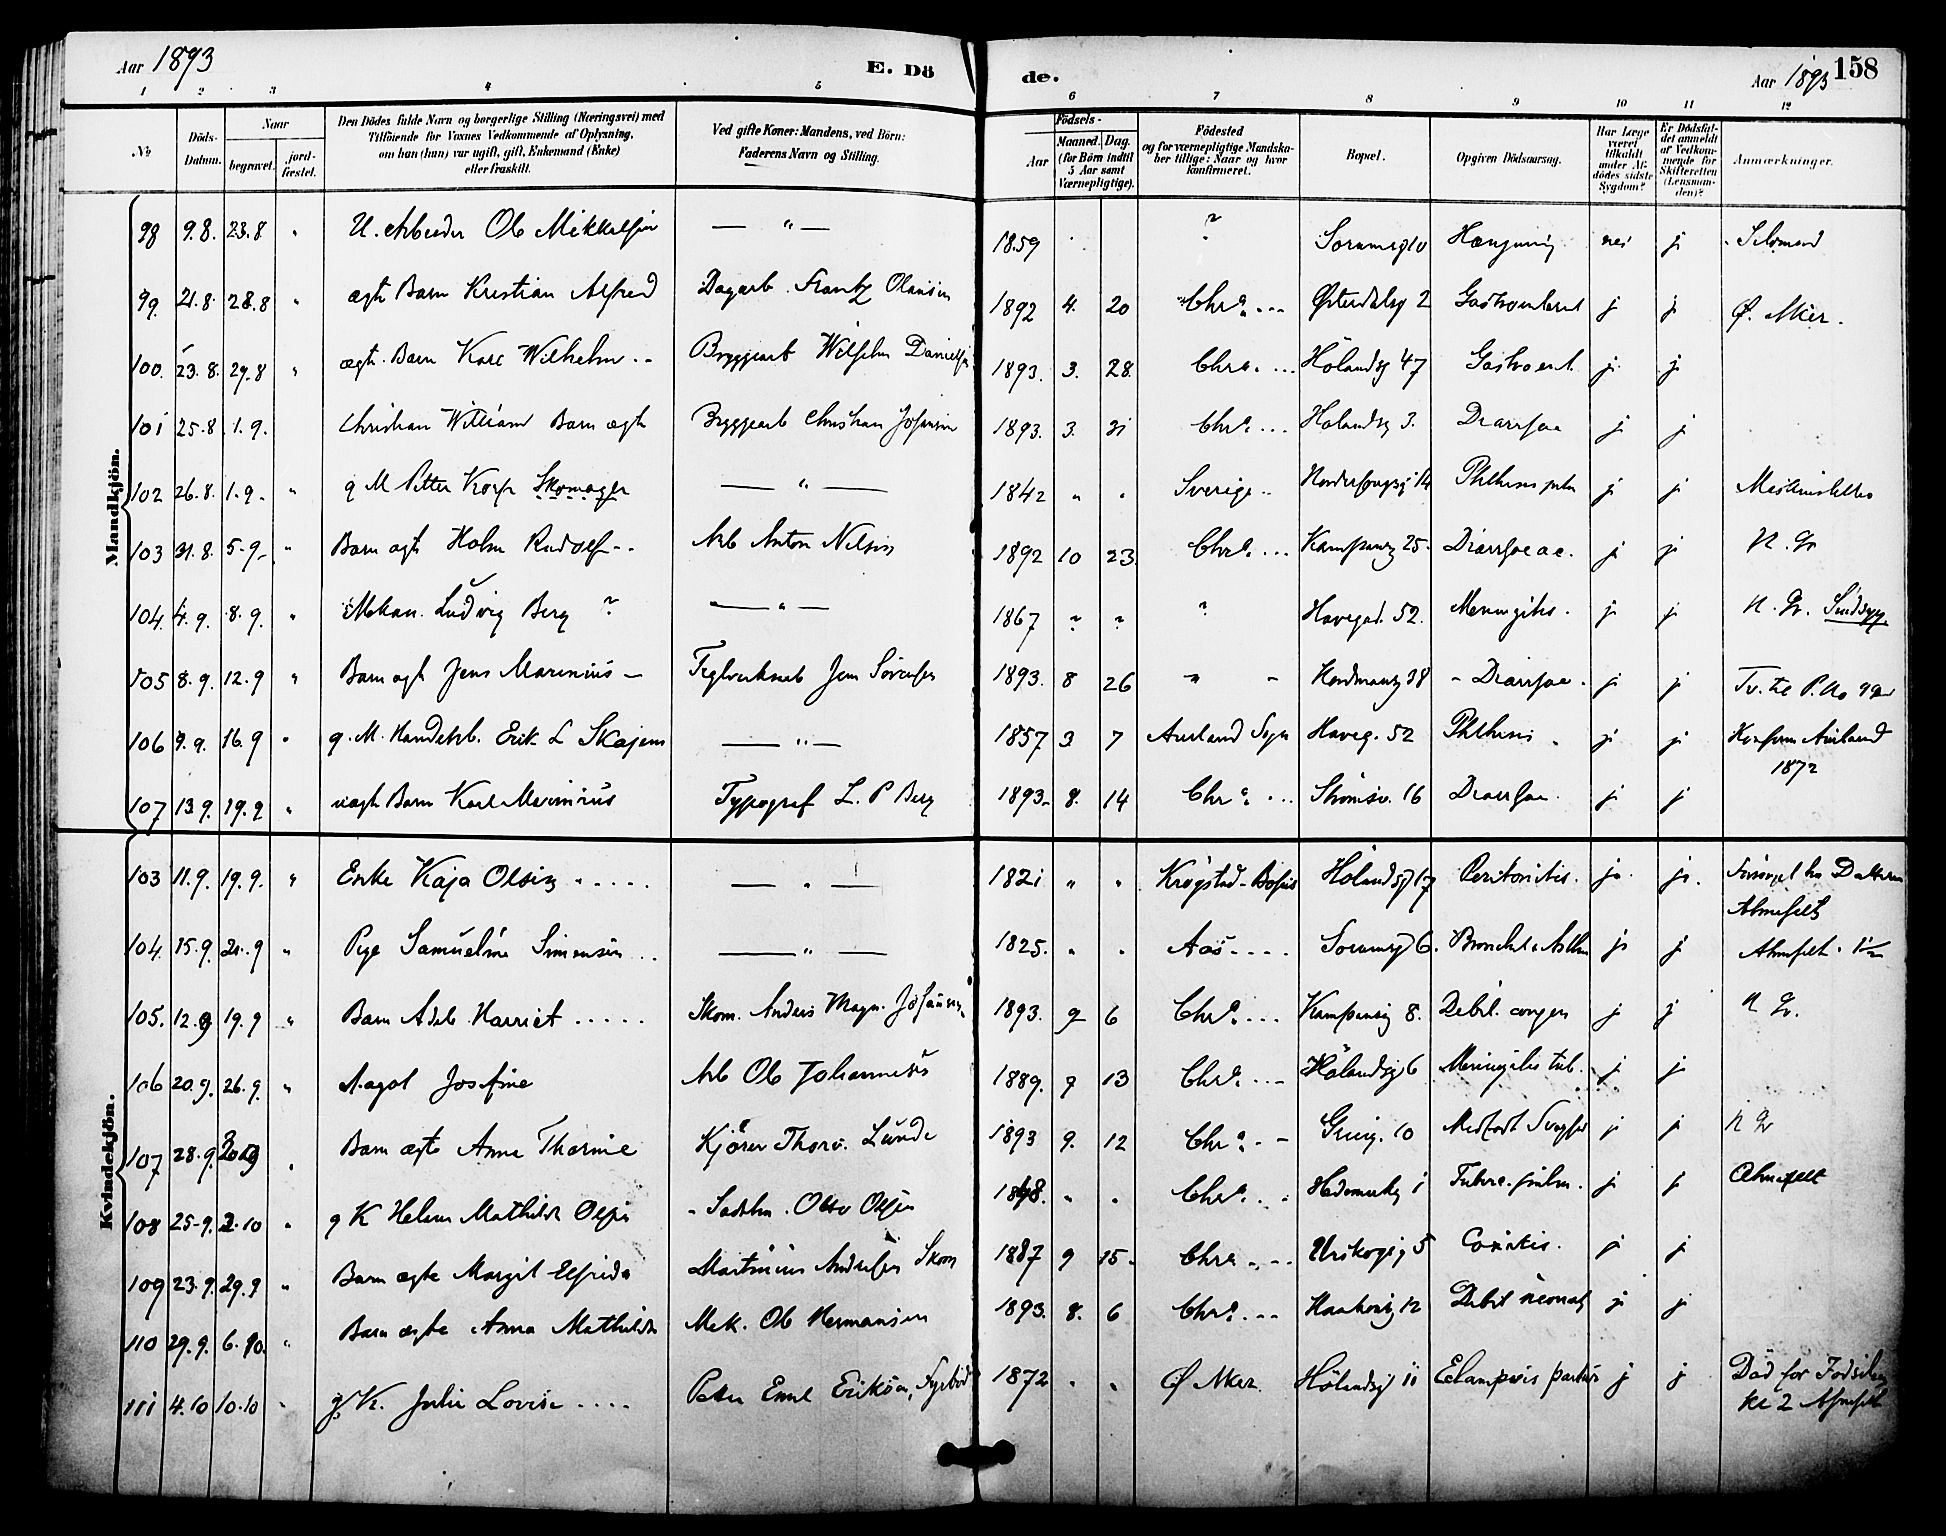 Aar 1893 E. Dö de. Aar 1893 158
1 2 3 4 5 6 7 8 9 10 11 12
No Döds-Datum. Naar begravet. jord-fæstet. Den Dödes fulde Navn og borgerlige Stilling (Næringsvei) med Tilföiende for Voxnes Vedkommende af Oplysning, om han (hun) var ugift, gift, Enkemand (Enke) eller fraskilt. Ved gifte Koner: Mandens, ved Börn: Faderens Navn og Stilling. Födsels- Aar Maaned. Dag. (for Börn indtil 5 Aar samt Værnepligtige). Födested og for værnepligtige Mandskaber tillige: Naar og hvor konfirmeret. Bopæl. Opgiven Dödsaarsag. Har Læge været tilkaldt under Afdödes sidste Sygdom? Er Dödsfaldet anmeldt af Vedkommende for Skifteretten (Lensmanden)? Anmærkninger.
Mandkjön.
98 9.8. 23.8 " U. Arbeider Ole Mikkelsen — " — 1859 ? Sorumsg 10 Hængning nei j Selvmord
99. 21.8. 28.8 " ægt. Barn Kristian Alfred Dagarb. Frantz Olausen 1892 4. 20 Chra. Østerdalsg 2 j j Ø. Aker.
100. 23.8. 29.8 " ægt. Barn Karl Wilhelm Bryggearb Wilhelm Danielsen 1893. 3. 28. Chra. Hölandsg 47 Gastroent. j j
101 25.8. 1.9. Christian William Barn ægte Bryggearb Christian Johansen 1893. 3. 21 Chra. Hölandsg 3. Diarrhoe j j
102 26.8. 1.9. " g M Petter Skomager — " — 1842 " " Sverige 14 Phthisis pulm j j
103 31.8. 5.9. " Barn ægte Holm Rudolf Arb Anton Nilsen 1892 10 23. Chra. Kampensg 25. Diarrhoe ac. j j N. Gr
104. 4.9. 8.9. " Mekan. Ludvig Berg ? — " — 1867 ? ? ? Havegad. 52. Meningitis. j j N. Gr. Sindsyg
105 8.9. 12.9 " Barn ægt Jens Marinius — Teglverksarb Jens Sörensen 1893. 8 26 " - Nordmannsg 38 - Diarrhoe. j j Tv. til P. No
106 9.9. 16.9 " g. M. Handelsb. Erik L Skajem — " — 1857 3 7 Aurland Sogn Haveg. 52 Phthisis j j Konfirm Aurland
1872
107 13.9. 19.9 " uægt Barn Karl Marinius Typograf L. P Berg 1893. 8. 14 Chra. Strömsv. 16 Diarrhoe j j
Kvindekjön.
103 11.9. 19.9. " Enke Kaja Olsen — " — 1821 " " Krogstad - Hölandsg 17 Peritonitis. ja. ja. Forsörget hos Datteren
Almefelt
104. 15.9. 21.9 " Pige Samueline Simensen — " — 1825. " " Aas Sorumsg 6. Bronchit & Asthma j j Almefelt.
105. 12.9 19.9 " Barn Adele Harriet Skom. Anders Magn. Johansen 1893. 9 6 Chra. Kampensg 8. Debil. congen j j N Gr.
106 20.9. 26.9. " Aagot Josefine Arb Ole Johannesen 1889. 9 13 Chra. Hölandsg 6 Meningitis tub. j j
107 28.9. Barn ægte Anna Thorine Kjörer Thorv. Lunde 1893 9. 12 Chra. Grueg. 10 Medfödt Svaghed j j N Gr
108 25.9. 2.10 " g K Helene Mathilde Olsen Olsen " " Chra. Hedemarksg 1 Tuberc. pulm. j j Almefelt
109 23.9. 29.9 " Barn ægte Margit Elfrida Martinius Andresen Skom 1887 9 15. Chra Urskogsg 5 Coxitis. j j
110 29.9. 6.10. " Barn ægte Anna Mathilde Mek. Ole Hermansen 1893. 8. 6 Chra. Haakonsg 12 Debil neonat j j
111 4.10 10.10 " g K. Julie Lovise Peter Emil Eriksen, Fyrböd 1872 " " Ø Aker. Hölandsg 11 Eclampsia partur j j Död før Fødselen
kl 2 Almefelt